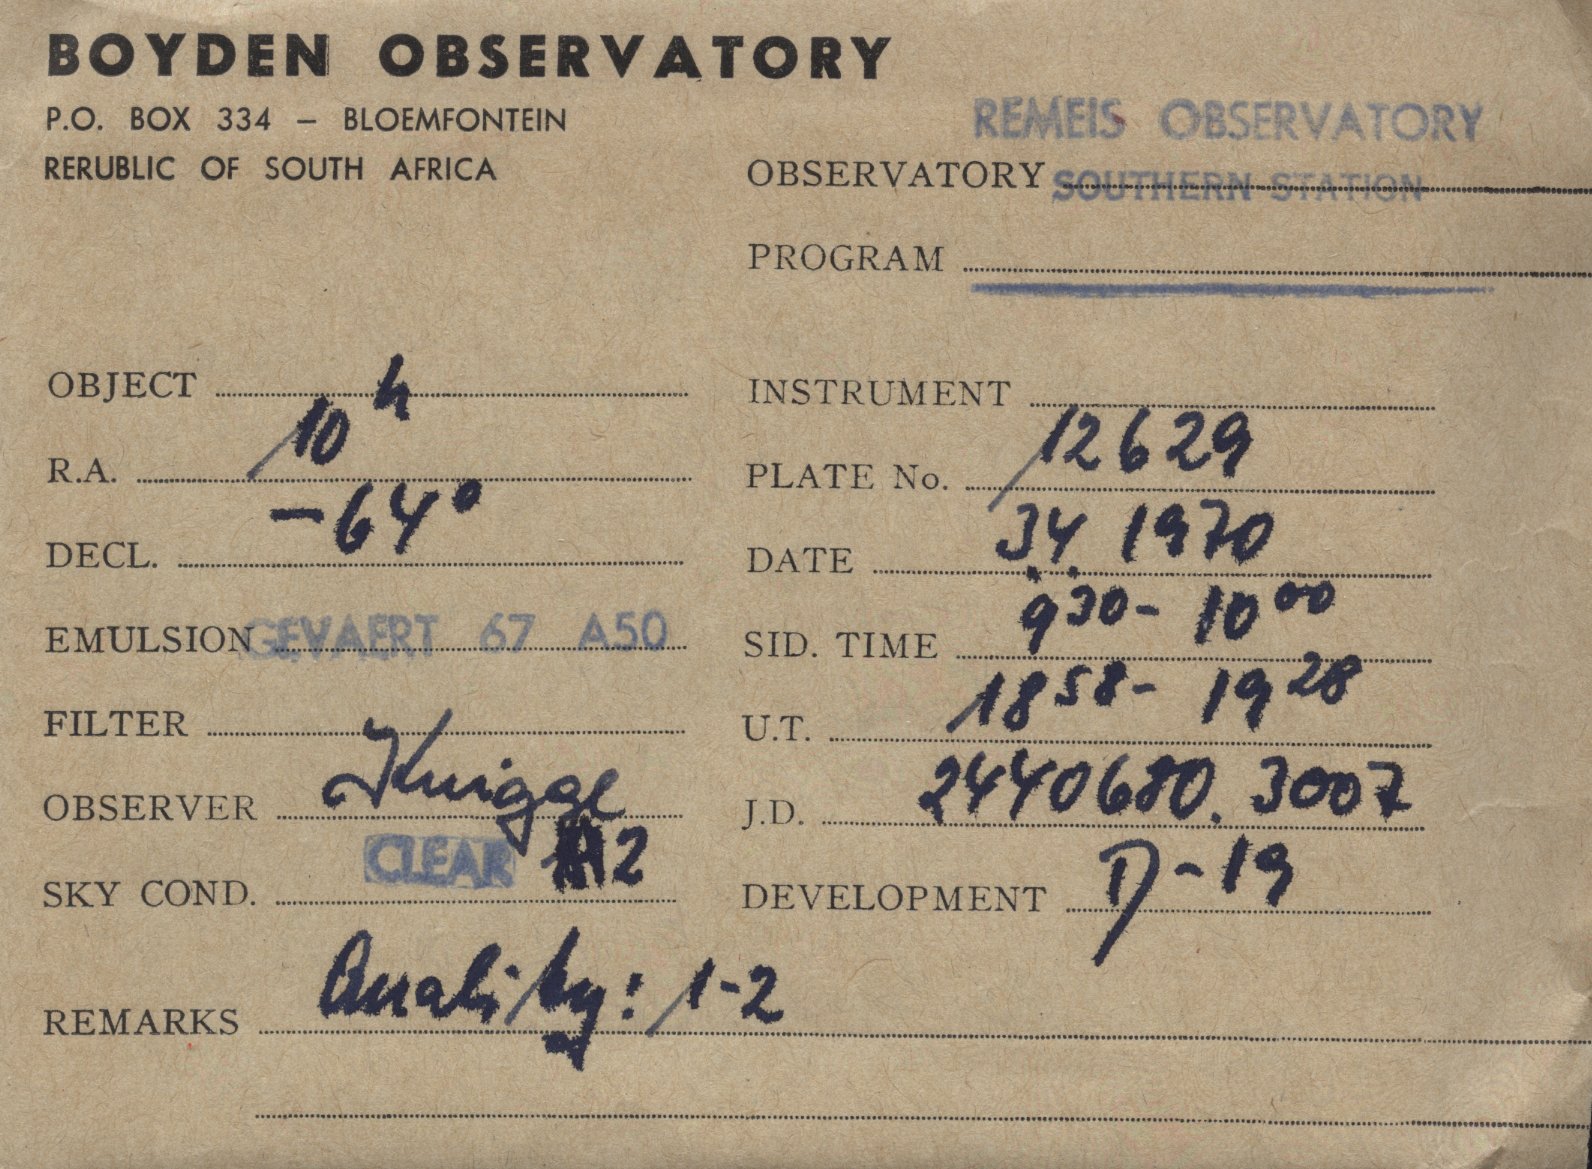 BOYDEN OBSERVATORY
P.O. BOX 334 – BLOEMFONTEIN
RERUBLIC OF SOUTH AFRICA
REMEIS OBSERVATORY
OBSERVATORY SOUTHERN STATION
PROGRAM
OBJECT
R.A. 10 h
DECL. -64°
EMULSION GEVAERT 67 A50
FILTER
OBSERVER Knigge
SKY COND. CLEAR 2
INSTRUMENT
PLATE No. 12629
DATE 3.4. 1970
SID. TIME 9 30 - 10 00
U.T. 18 58 - 19 28
J.D. 2440680.3007
DEVELOPMENT D-19
REMARKS Quality: 1-2